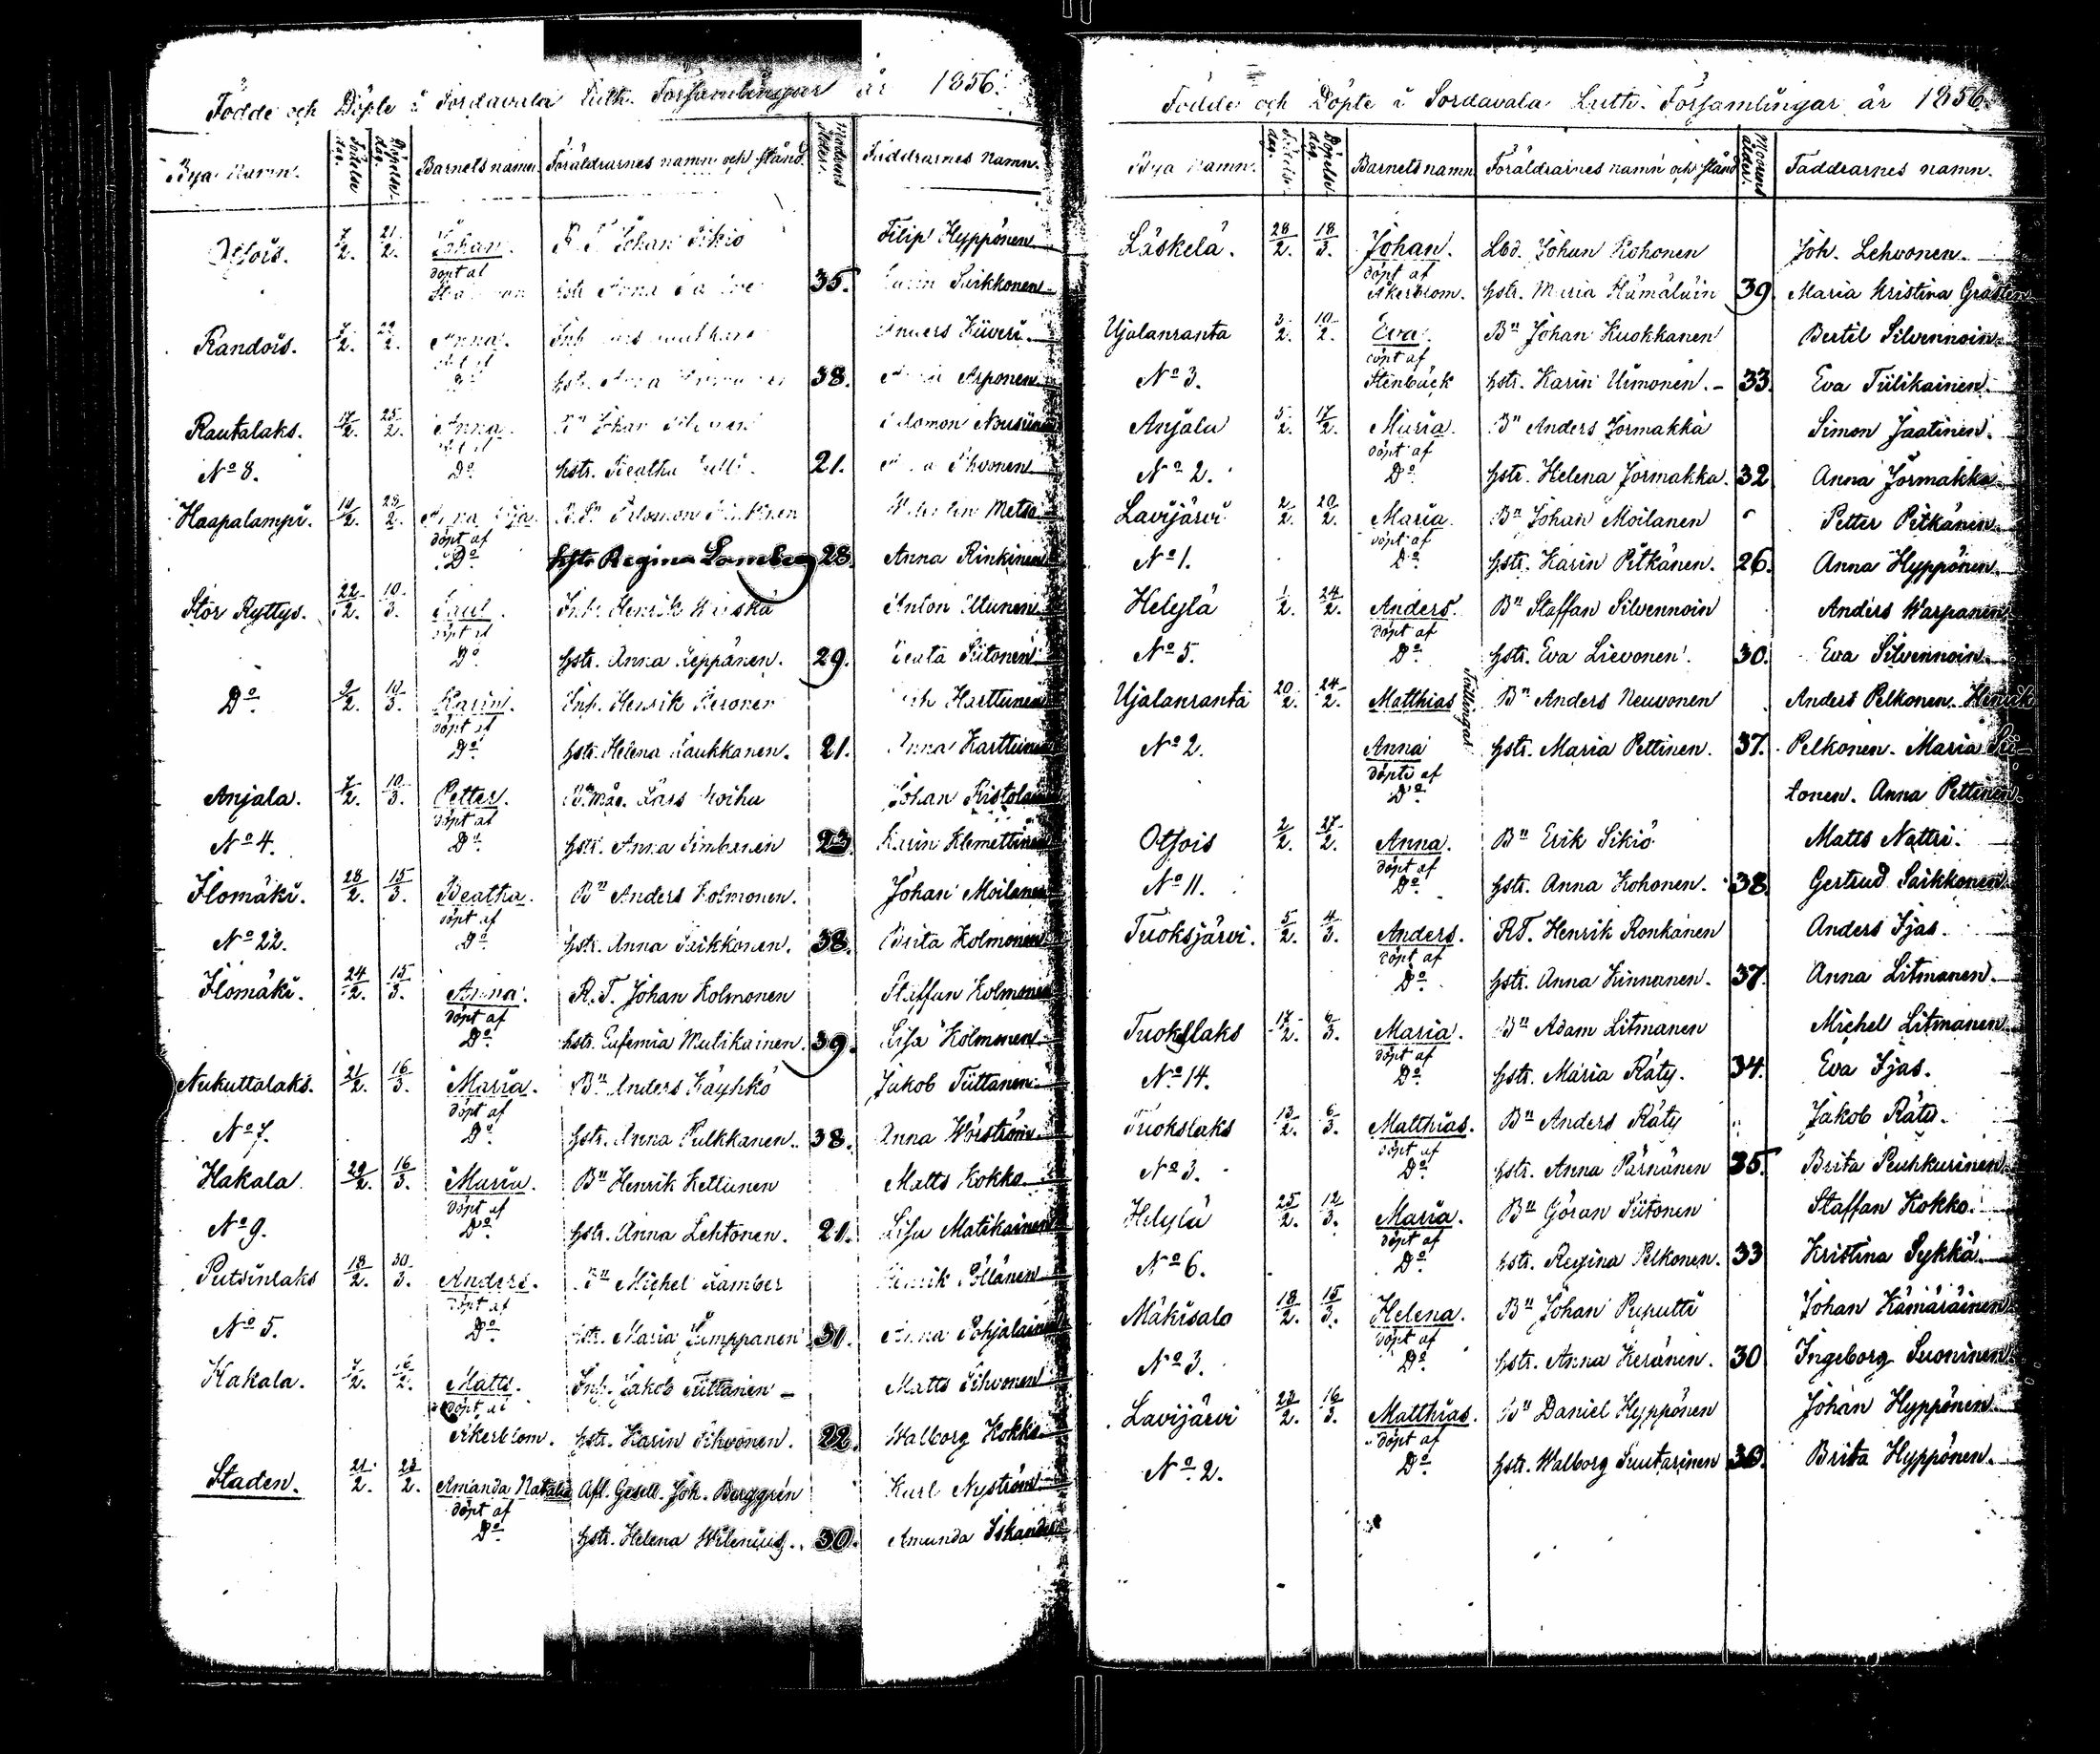 Födde och Döpte i Sordavala Luth. Församlingar år 1856.
Bya namn. Födelse dag. Döpelse dag. Barnets namn. Föräldrarnes namn och stånd. Modrens ålder. Faddrarnes namn.
Otsois. 7/2. 21/2. Johan. Johan Sikiö Filip Hyppönen
döpt af
hstr. Anna 35. Karin Saikkonen
Randois. 7/2. 22/2. Anna. Inh. Anders Kiiveri
döpt af
Do hstr. Anna 38. Arponen
Rautalaks. 17/2. 25/2. Anna. Bn Johan Salomon Nousiainen
döpt af
No 8. Do hstr. Beatha 21. Sihvonen
Haapalampi. 10/2. 28/2. Anna B.S. Salomon Metso
döpt af
Do hstr. Regina Lamberg 28. Anna Rinkinen
Stor Ryttys. 22/2. 10/3. Paul. Inh. Henrik Anton Utunen
döpt af
Do hstr. Anna Leppänen. 29. Beata Siitonen
Do 9/2. 10/3. Karin. Inh. Henrik Peronen Harttunen
döpt af
Do hstr. Helena Laukkanen. 21. Anna Karttunen
Anjala. 7/2. 10/3. Petter. Lars Koihu Johan Ristolainen
döpt af
No 4. Do hstr. Anna Simbanen 23. Karin Klemettinen
Ilomäki. 28/2. 15/3. Beatha. Bn Anders Kolmonen. Johan Moilanen
döpt af
No 22. Do hstr. Anna Saikkonen. 38. Brita Kolmonen
Ilomäki. 24/2. 15/3. Anna. R.T. Johan Kolmonen Staffan Kolmonen
döpt af
Do hstr. Eufemia Mulikainen. 39. Lisa Kolmonen
Nukuttalaks. 21/2. 16/3. Maria. Bn Anders Käyhkö Jakob Tiittanen
döpt af
No 7. Do hstr. Anna Pulkkanen. 38. Anna Wörström
Hakala 29/2. 16/3. Maria. Bn Henrik Kettunen Matts Kokko
döpt af
No 9. Do hstr. Anna Lehtonen. 21. Lisa Matikainen
Putsinlaks 18/2. 30/3. Anders. Bn Michel Lamber Henrik Pöllänen
döpt af
No 5. Do hstr. Maria Lumppanen 31. Anna Pohjalainen
Hakala. 7/2. /2. Matts. Inh. Jakob Tiittanen Matts Sihvonen
döpt af
Åkerblom. hstr. Karin Sihvonen. 22. Walborg Kokko
Staden. 21/2. 28/2. Amanda Natalia Afl. Gesell. Joh. Berggrén Karl Nyström
döpt af
Do hstr. Helena Wilenius. 30. Amanda Iskander
Födde och Döpte i Sordavala Luth. Församlingar år 1856.
Bya namn. Födelse dag. Döpelse dag. Barnets namn. Föräldrarnes namn och stånd Modrens ålder. Faddrarnes namn.
Läskelä. 28/2. 18/3. Johan. Lbd. Johan Kohonen Joh. Lehvonen.
döpt af
Åkerblom. hstr. Maria Hämäläin 39. Maria Kristina Grasten
Ujalanranta 3/2. 10/2. Eva. Bn Johan Kuokkanen Bertil Silvennoin
döpt af
No 3. Stenbäck hstr. Karin Uimonen. 33. Eva Tiilikainen.
Anjala 5/2. 17/2. Maria. Bn Anders Jormakka Simon Jaatinen.
döpt af
No 2. Do hstr. Helena Jormakka. 32 Anna Jormakka
Lavijärvi 2/2. 20/2. Maria. Bn Johan Moilanen Petter Pitkänen
döpt af
No 1. Do hstr. Karin Pitkänen. 26. Anna Hyppönen
Helylä 1/2. 24/2. Anders. Bn Staffan Silvennoin Anders Warpanen
döpt af
No 5. Do hstr. Eva Lievonen. 30. Eva Silvennoin
Ujalanranta 20/2. 24/2. Matthias Tvillingar Bn Anders Neuvonen Anders Pelkonen. Henrik
No 2. Anna hstr. Maria Pettinen. 37. Pelkonen. Maria Sii-
döpte af
Do tonen. Anna Pettinen.
Otsois 2/2. 27/2. Anna. Bn Erik Sikiö Matts Nattri.
döpt af
No 11. Do hstr. Anna Kohonen. 38. Gertrud Saikkonen
Tuoksjärvi. 5/2. 4/3. Anders. RT. Henrik Ronkanen Anders Ijas.
döpt af
Do hstr. Anna Kinnanen. 37. Anna Litmanen.
Tuokslaks 17/2. 6/3. Maria. Bn Adam Litmanen Michel Litmanen
döpt af
No 14. Do hstr. Maria Räty. 34. Eva Ijas.
Tuokslaks 13/2. 6/3. Matthias. Bn Anders Räty Jakob Räty.
döpt af
No 3. Do hstr. Anna Pärnänen 35. Brita Peuhkurinen
Helylä 25/2. 12/3. Maria. Bn Göran Siitonen Staffan Kokko.
döpt af
No 6. Do hstr. Regina Pelkonen. 33 Kristina Sykkä
Mäkisalo 18/2. 15/3. Helena. Bn Johan Puputti Johan Kämäräinen
döpt af
No 3. Do hstr. Anna Keränen. 30 Ingeborg Suoninen
Lavijärvi 22/2. 16/3. Matthias. Bn Daniel Hyppönen Johan Hyppönen
döpt af
No 2. Do hstr. Walborg Suutarinen 30. Brita Hyppönen.